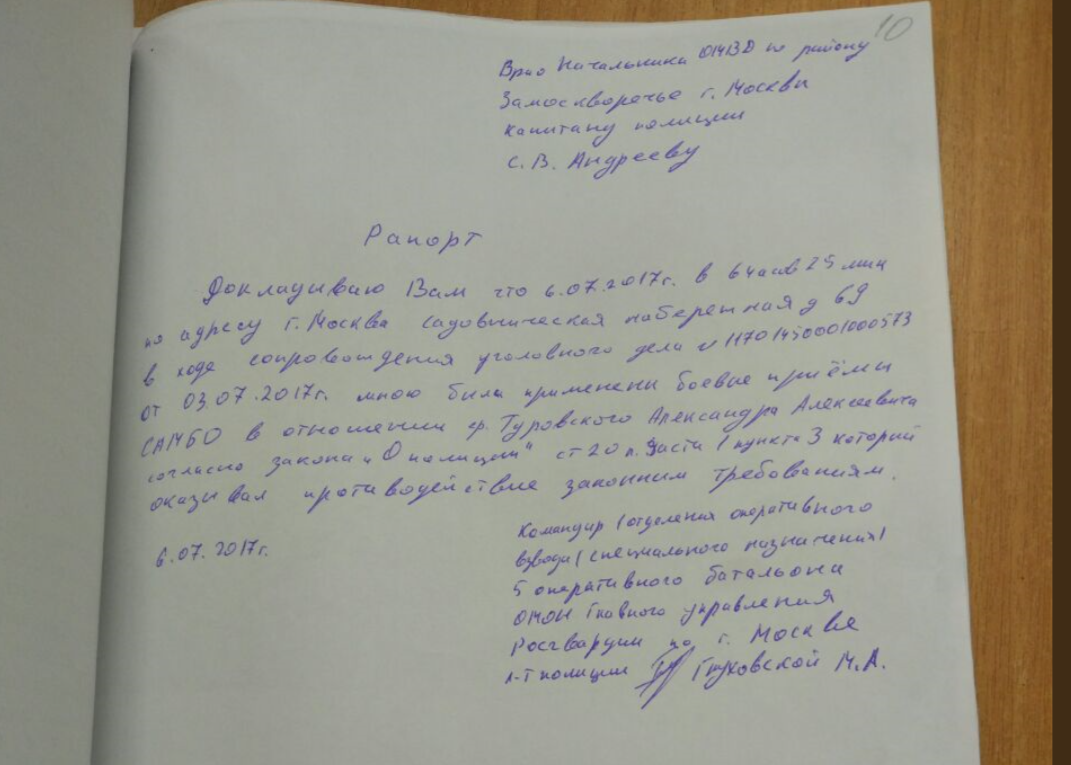 10
Врио Начальника ОМВД по району
Замоскворечье г. Москвы
капитану полиции
С. В. Андрееву
Рапорт
Докладываю Вам что 6.07.2017г. в 6 часов 25 мин
по адресу г. Москва Садовническая набережная д 69
в ходе сопровождения уголовного дела № 11701450001000573
от 03.07.2017г. мною были применены боевые приёмы
САМБО в отношении гр. Туровского Александра Алексеевича
согласно закона „О полиции" ст 20 п. части 1 пункта 3 который
оказывал противодействие законным требованиям.
6.07.2017г.
Командир 1 отделения оперативного
взвода (специального назначения)
5 оперативного батальона
ОМОН Главного управления
Росгвардии по г. Москве
л-т полиции Глуховской М.А.